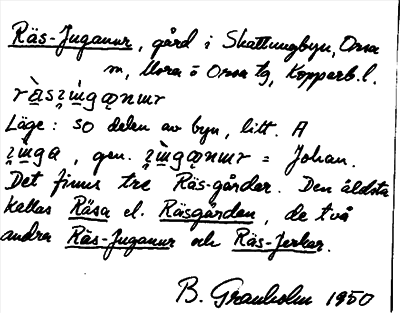 Räs-Juganur, gård i Skattungbyn, Orsa
m, Mora o Orsa tg, Kopparb.l.
Läge: SO delen av byn, litt. A
gen. = Johan.
Det finns tre Räs-gårdar. Den äldsta
kallas Räsa el. Räsgården, de två
andra Räs-Juganur och Räs-Jerker.
B. Granholm 1950